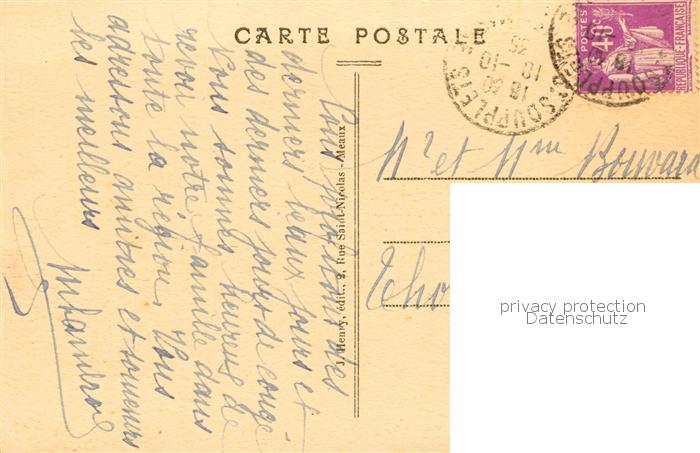 CARTE POSTALE
POSTES
40c
REPUBLIQUE FRANÇAISE
18 30
10-10
35
SOUPPLETS
Nous profitons des
derniers beaux jours et
des derniers jours de congé
Nous sommes heureux de
revoir notre famille dans
toute la région. Vous
adressons amitiés et
les meilleurs
J. Henry, édit., 2, Rue Saint-Nicolas - Meaux
Mr et Mme Bouvard
Tho
privacy protection
Datenschutz